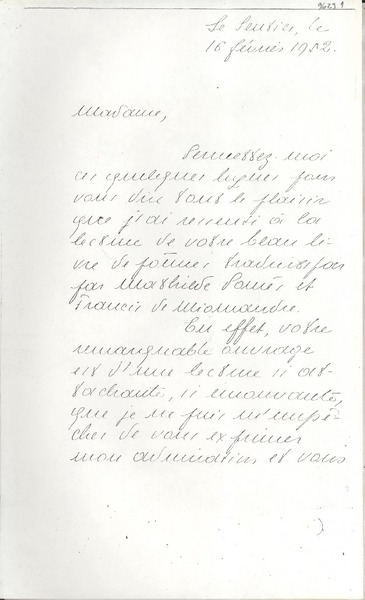 9629 1
Le Sentier, le
16 février 1952.
Madame,
Permettez-moi
ces quelques lignes pour
vous dire tout le plaisir
que j'ai ressenti à la
lecture de votre beau li-
vre de poèmes traduits par
par Mathilde Pomès et
Francis de Miomandre.
En effet, votre
remarquable ouvrage
est d'une lecture si at-
tachante, si émouvante,
que je ne puis m'empê-
cher de vous exprimer
mon admiration et vous